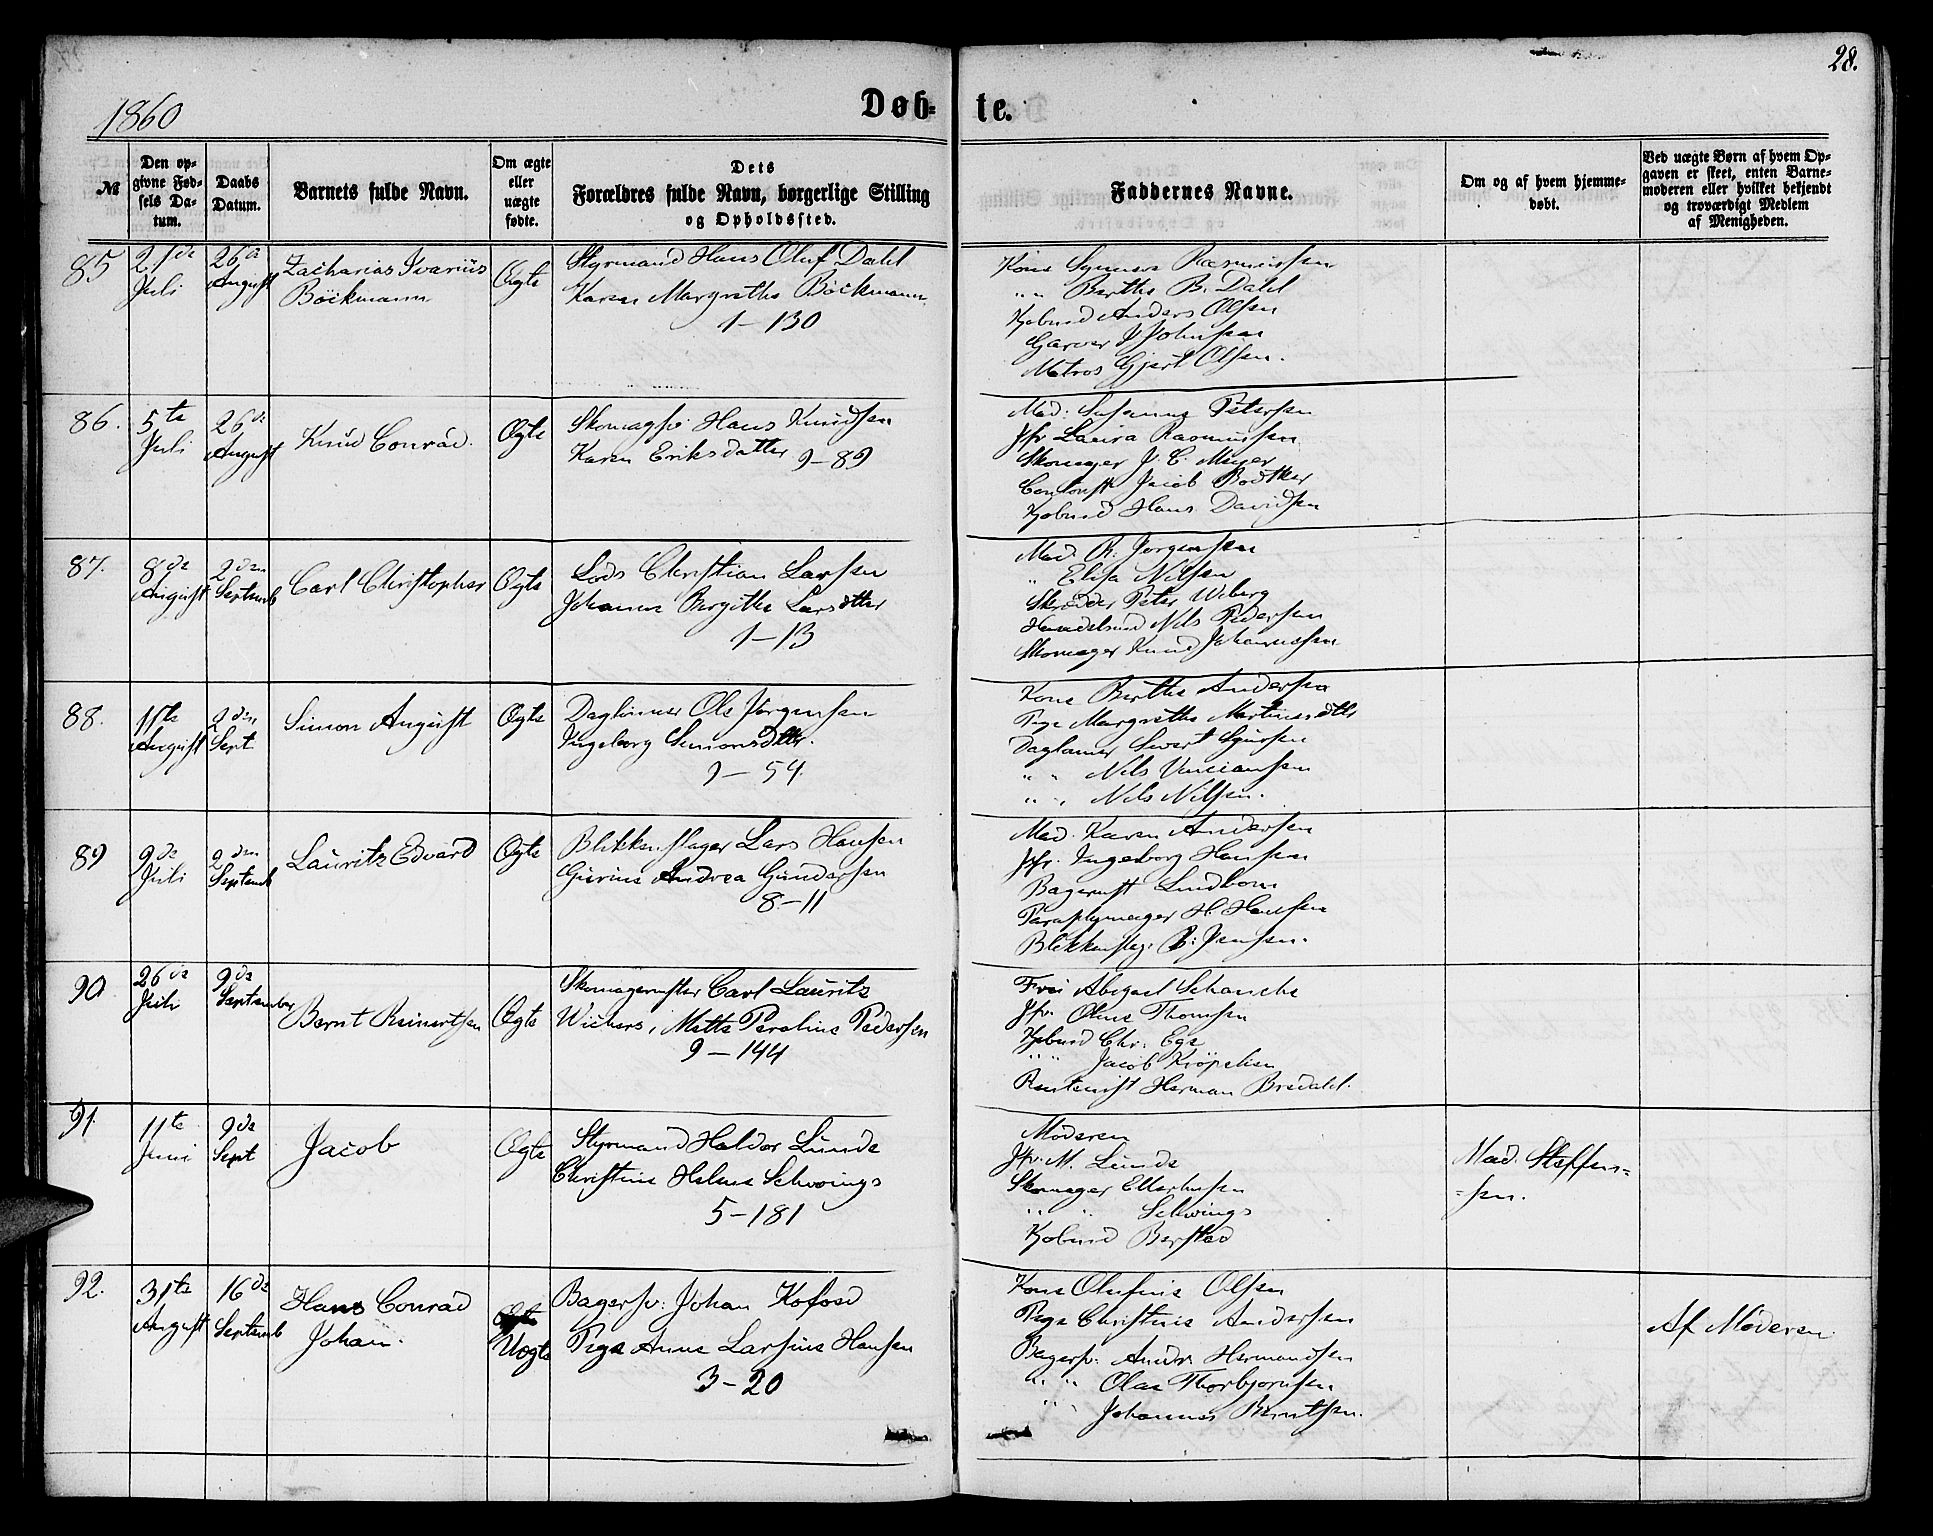 28.
1860
Døb-
te.
№
Den op-
givne Fød-
sels Da-
tum.
Daabs
Datum.
Barnets fulde Navn.
Om ægte
eller
uægte
fødte.
Dets
Forældres fulde Navn, borgerlige Stilling
og Opholdssted.
Faddernes Navne.
Om og af hvem hjemme-
døbt.
Ved uægte Børn af hvem Op-
gaven er skeet, enten Barne-
moderen eller hvilket bekjendt
og troværdigt Medlem
af Menigheden.
85
21de
Juli
26de
August
Zacharias Ivarius
Böckmann
Ægte
Styrmand Hans Oluf Dahl
Karen Margrethe Böckmann
1-130
Kone Rasmussen
" " Berthe B. Dahl
Anders Olsen
Garver J Johnsen
Matros Gjert Olsen.
86.
5te
Juli
26de
August
Knud Conrad.
Ægte
Skomagsv Hans Knudsen
Karen Eriksdatter 9-89
Mad: Susanne Petersen
Jfr Laura Rasmussen
Skomager J. C. Meyer
Contorist Jacob Bödtker
Hans Davidsen
87.
8de
August
2den
Septemb
Carl Christopher
Ægte
Lods Christian Larsen
Johanne Bergithe Larsdtter
1-13
Mad. R. Jørgensen
" Elisa Nilsen
Skræder Peter Wiberg
Handelsmd Nils Pedersen
Skomager Knud Johannesen
88.
11te
August
2den
Sept
Simon August
Ægte
Daglönner Ole Jörgensen
Ingeborg Simonsdttr.
9-54.
Kone Berthe Andersen
Pige Margrethe Martinusdttr
Daglønner Sivert
" " Nils
" " Nils Nilsen.
89
9de
Juli
2den
Septemb
Lauritz Edvard
Ægte
Blikkenslager Lars Hansen
Gurine Andrea Gundersen
8-11
Mad. Karen Andersen
Jfr. Ingeborg Hansen
Lindbom
Paraplymager H. Hansen
Blikkenslg. B: Jensen.
90
26de
Juli
9de
September
Bernt Reinertsen
Ægte
Skomagermster Carl Lauritz
Wichers, Mette Peroline Pedersen
9-144
Fru Abigael Schanche
Jfr. Oline Thomsen
Kjøbmd Chr. Ege
" " Jacob Kröpelien
Herman Bredahl.
91.
11te
Juni
9de
Sept
Jacob
Ægte
Styrmand Haldor Lunde
Christine Helene Schwings
5-181
Moderen
Jfr. M. Lunde
Skomager Ellerhusen
" " Schwings
Berstad
Mad. Steffen-
-sen.
92.
31te
August
16de
Septemb
Hans Conrad
Johan.
Uægte
Bagersv: Johan Kofoed
Pige Anne Larsine Hansen
3-20
Kone Olufine Olsen
Pige Christine Andersen
Bagersv. Andr. Hermandsen
" " Olaa Thorbjørnsen
" " Johannes Berntsen.
Af Moderen